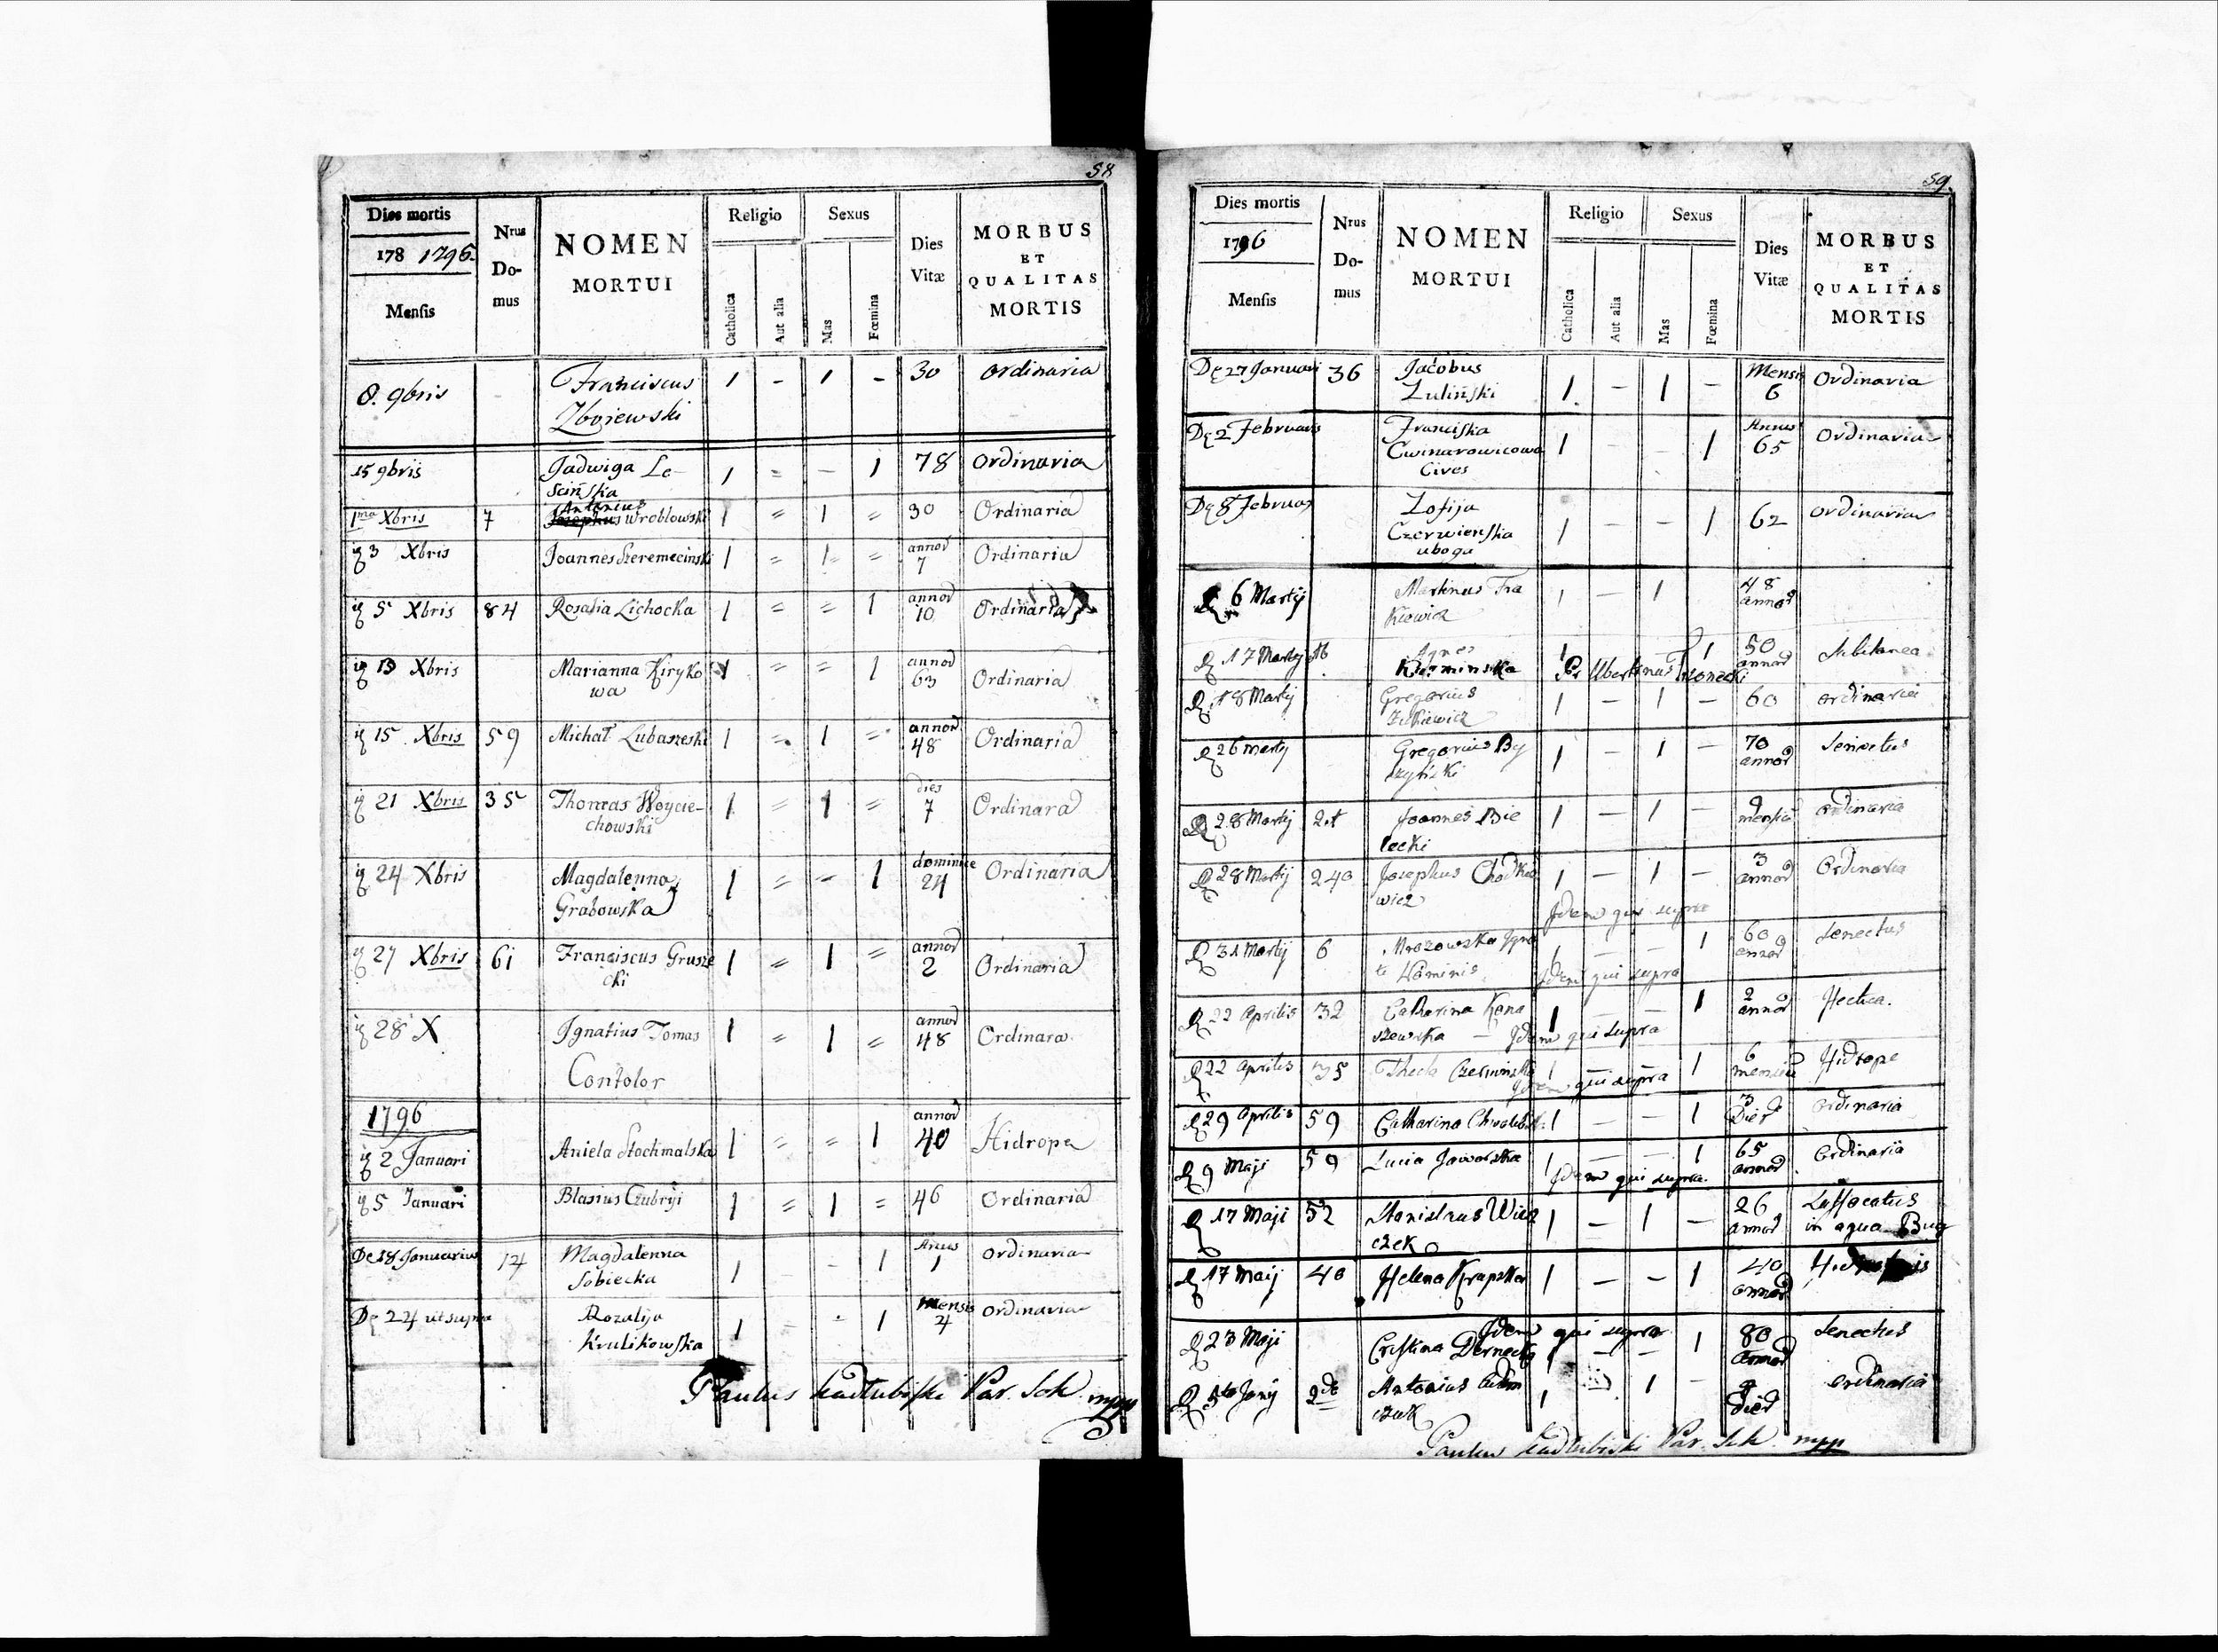 58
Dies mortis
178 1796.
Mensis
Nrus Do-mus
NOMEN
MORTUI
Religio
Catholica
Aut alia
Sexus
Mas
Fœmina
Dies Vitæ
MORBUS
ET
QUALITAS
MORTIS
8. 9bris Franciscus 1 - 1 - 30 ordinaria
Zbojewski
15 9bris Jadwiga Le- 1 = - 1 78 Ordinaria
scińska
Antonius
1ma Xbris 7 Josephus Wroblowski 1 = 1 = 30 Ordinaria
3 Xbris Joannes Szeremecinski 1 = 1 = annor 7 Ordinaria
5 Xbris 84 Rosalia Lichocka 1 = = 1 annor 10 Ordinaria
13 Xbris Marianna Kiryko 1 = = 1 annor 63 Ordinaria
wa
15 Xbris 59 Michał Lubaszeski 1 = 1 = annor 48 Ordinaria
21 Xbris 35 Thomas Woycie- 1 = 1 = dies 7 Ordinara
chowski
24 Xbris Magdalenna 1 = - 1 24 Ordinaria
Grabowska
27 Xbris 61 Franciscus Grusze 1 = 1 = annor 2 Ordinaria
cki
28 X Ignatius Tomas 1 = 1 = annor 48 Ordinara
Contolor
1796
2 Januari Aniela Stochmalska 1 = = 1 annor 40 Hidropa
5 Januari Blasius Czubryi 1 = 1 = 46 Ordinaria
De 18 Januarius 14 Magdalenna 1 - - 1 1 ordinaria
Sobiecka
De 24 ut supra Rozalija 1 - - 1 Mensis 4 ordinaria
Krulikowska
Paulus Kadlubiski Par. Sok. mpp
59.
Dies mortis
1796
Mensis
Nrus Do-mus
NOMEN
MORTUI
Religio
Catholica
Aut alia
Sexus
Mas
Fœmina
Dies Vitæ
MORBUS
ET
QUALITAS
MORTIS
De 27 Januari 36 Jacobus 1 - 1 - Mensis 6 Ordinaria
Zuliński
De 2 Februari Franciska 1 - - 1 Annus 65 Ordinaria
Cwinarowicowa
Cives
De 8 Februar Zofija 1 - - 1 62 ordinaria
Czerwienska
uboga
6 Martij Martinus Fra 1 - 1 48 annor
kiewicz
17 Martij 16 Agnes 1 - 1 50 annor Subitanea
Kuzminska
18 Martij Gregorius 1 - 1 - 60 ordinaria
Zukiewicz
26 martij Gregorius By 1 - 1 - 70 annor Senectus
czyński
28 Martij Joannes Bie 1 - 1 - 9 ordinaria
lecki
28 Martij 240 Josephus Chodkie 1 - 1 - 3 annor Ordinaria
wicz
Idem qui supra
31 Martij 6 Mrozowska Igno 1 - - 1 60 annor Senectus
ti Nominis
Idem qui supra
22 Aprilis 32 Catharina Kona 1 - - 1 2 annor Hectica.
szewska - Idem qui supra
22 Aprilis Thecla Czerwinska 1 - - 1 6 Hidrope
Idem qui supra
29 Aprilis 59 Catharina 1 - - 1 3 Dier ordinaria
9 Maji 59 Lucia Jaworska 1 - - 1 65 annor Ordinaria
Idem qui supra.
17 Maji 52 Stanislaus Wie 1 - 1 - 26 annor Suffocatus
czek in aqua Bug
17 Maij 40 Helena Krapska 1 - - 1 40 annor
Idem qui supra
23 Maji Cristina 1 - - 1 80 annor Senectus
Antonius Adam 1 - 1 - 9 dier ordinaria
czuk
Paulus Kadlubiski Par. Sok. mpp